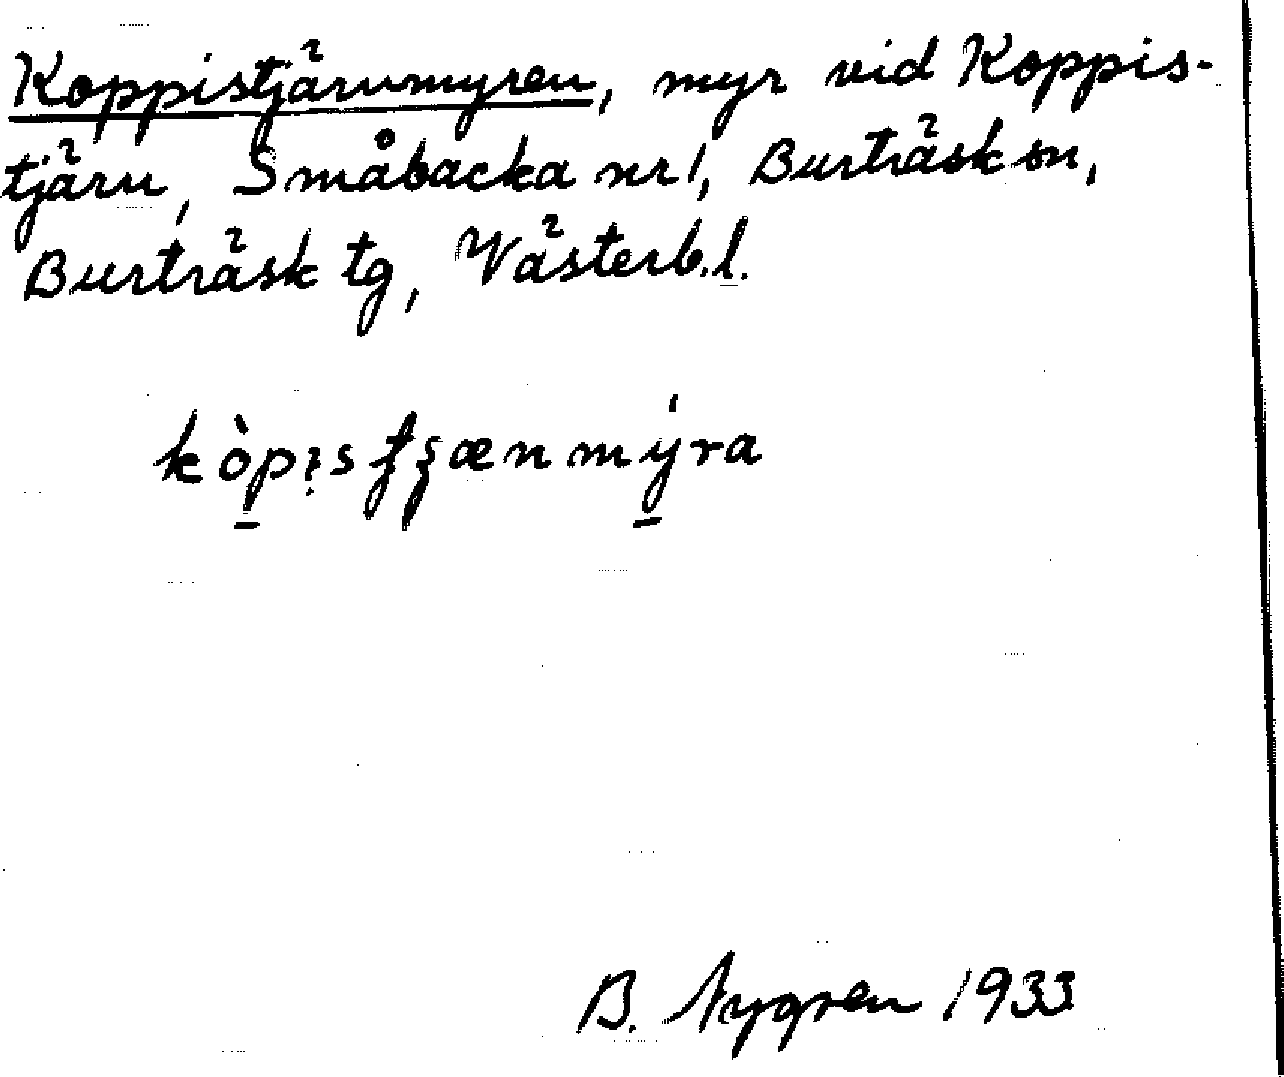 Koppistjärnmyren, myr vid Koppis-
tjärn, Småbacka nr 1, Burträsk sn,
Burträsk tg, Västerb. l.
B. Nygren 1933